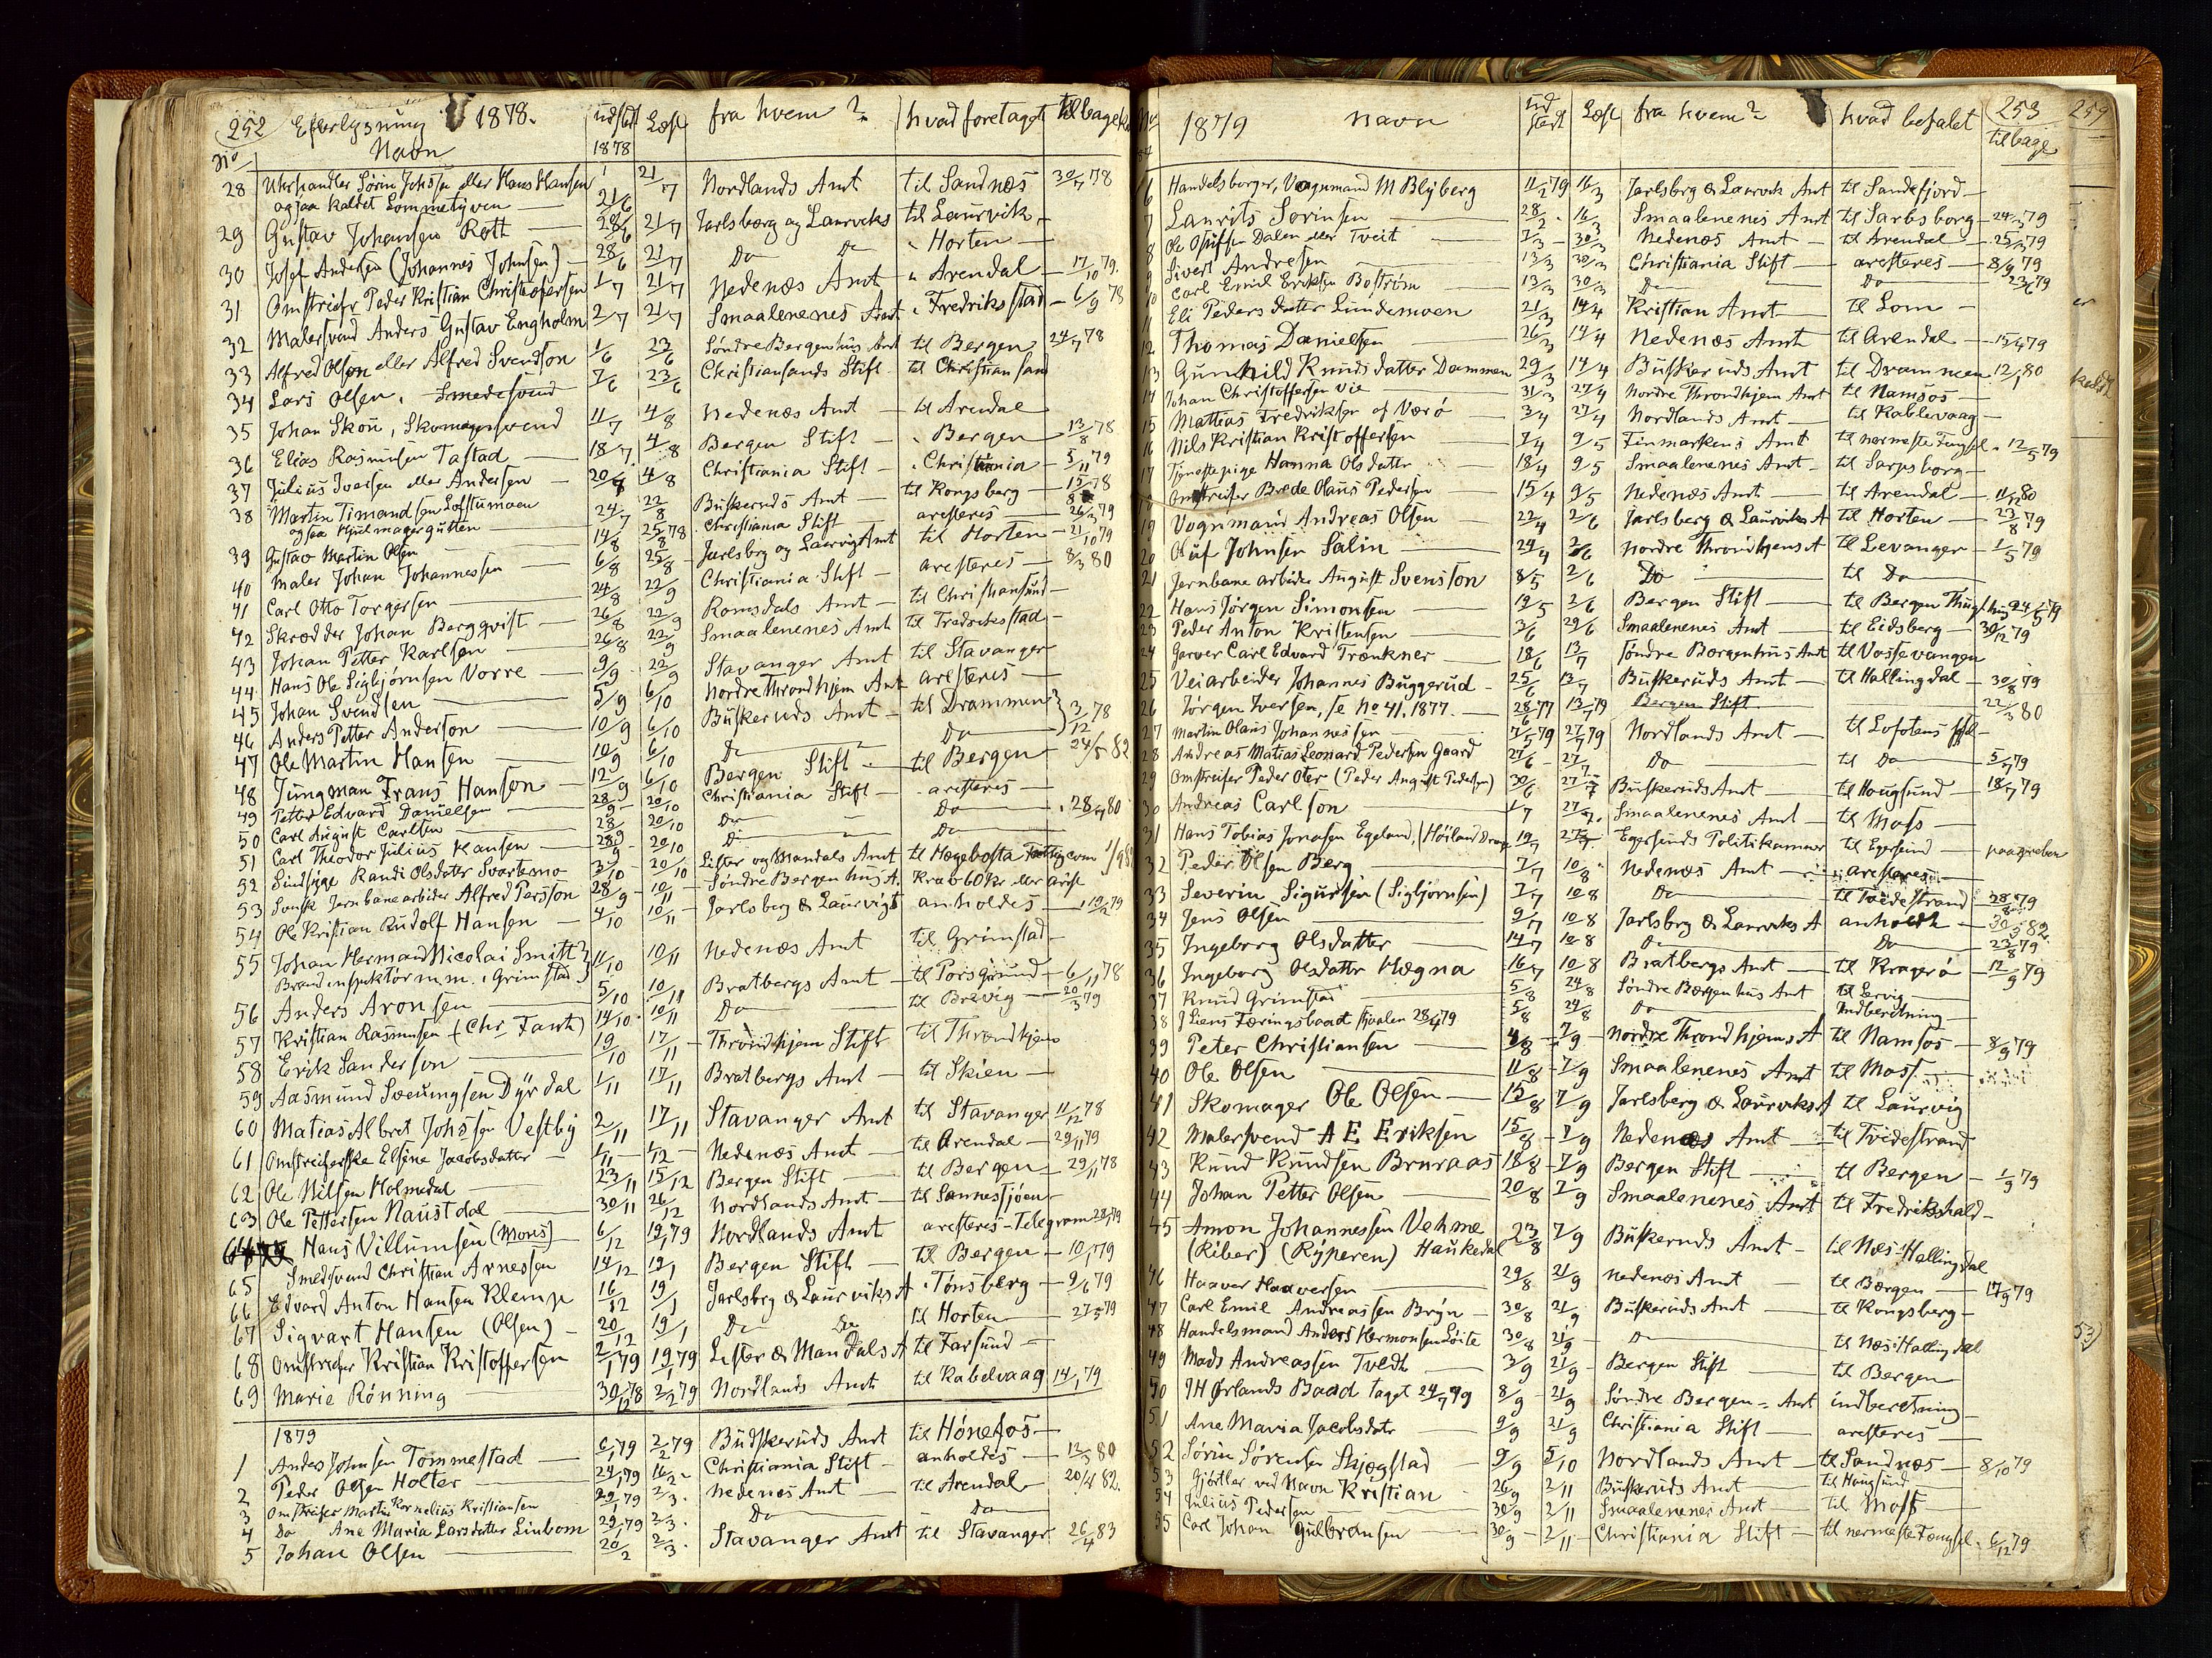 252 Efterlysning 1878. udstedt Læst fra hvem? hvad foretaget tilbagek
No Navn 1878
28 Uhrhandler Sörin Johssen eller Hans Hansen 21/7 Nordlands Amt til Sandnæs 30/7 78
ogsaa kaldet Lommetyven 21/6
29 Gustav Johansen Rott 28/6 21/7 Jarlsberg og Laurviks til Laurvik
30 Josef Andersen (Johannes Johnsen) 28/6 21/7 Do Do " Horten
31 Omstreifr Peder Kristian Christofersen 1/7 21/7 Nedenæs Amt " Arendal 17/10 79.
32 Malersvend Anders Gustav Engholm 2/7 21/7 Smaalenenes Amt " Fredriksstad 6/9 78
33 Alfred Olson eller Alfred Svendson 1/6 23/6 Söndre Bergenhus Amt til Bergen 24/7 78
34 Lars Olsen, Smedesvend 7/6 23/6 Christiansands Stift til Christiansand
35 Johan Skou, Skomagersvend 11/7 4/8 Nedenæs Amt til Arendal
36 Elias Rasmusen Tastad 18/7 4/8 Bergen Stift " Bergen 13/8 78
37 Julius Iversen eller Andersen 20/7 4/8 Christiania Stift " Christiania 5/11 79
38 Martin Timandsen Lofstumoen 24/7 22/8 Buskeruds Amt til Kongsberg 15/8 78
ogsaa Hjulmagergutten
39 Gustav Martin Olsen 14/8 25/8 78 Christiania Stift aresteres 26/2 79
40 Maler Johan Johannessen 6/8 25/8 Jarlsbrg og Laurvigs Amt til Horten 21/10 79
41 Carl Otto Torgersen 24/8 22/9 Christiania Stift aresteres 8/3 80
42 Skrædder Johan Bergqvist 26/8 22/9 Romsdals Amt til Christiansund
43 Johan Petter Karlsen 26/8 22/9 Smaalenenes Amt til Fredriksstad
44 Hans Ole Sigbjörnsen Vorre 9/9 22/9 Stavanger Amt til Stavanger
45 Johan Svendsen 5/9 6/10 Nordre Throndhjem Amt aresteres
46 Anders Petter Anderson 10/9 6/10 Buskeruds Amt til Drammen 3/12 78
47 Ole Martin Hansen 10/9 6/10 Do Do
48 Jungman Frans Hanson 12/9 6/10 Bergen Stift til Bergen 24/5 82
49 Petter Edvard Danielsen 28/9 20/10 Christiania Stift aresteres
50 Carl August Carlsen 28/9 20/10 Do Do 28/7 80
51 Carl Theodor Julius Hansen 28/9 20/10 Do Do
52 Sindsyge Randi Olsdatter Svartemo 3/10 20/10 Lister og Mandals Amt til Hægebosta Fattigcom
53 Svensk Jernbanearbider Alfred Persson 28/9 10/11 Söndre Bergenhus A. Krav 60 Kr eller Arest
54 Ole Kristian Rudolf Hansen 4/10 10/11 Jarlsberg & Laurvigs anholdes 19/2 79
55 Johan Herman Nicolai Smitt 11/10 10/11 Nedenæs Amt til Grimstad
Brandinspektör m.m. i Grimstad
56 Anders Aronsen 5/10 10/11 Bratbergs Amt til Porsgrund 6/11 78
57 Kristian Rasmusen (Chr Fanth) 14/10 10/11 Do til Brevig 20/3 79
58 Erik Sanderson 19/10 17/11 Throndhjem Stift til Throndhjem
59 Aasmund Sveinungsen Dyrdal 1/11 17/11 Bratbergs Amt til Skien
60 Matias Albret Johssen Vestby 2/11 17/11 Stavanger Amt til Stavanger 11/12 78
61 Omstreiferske Elsine Jacobsdatter 1/11 1/12 Nedenæs Amt til Arendal 29/11 79
62 Ole Nilsen Holmedal 23/11 15/12 Bergen Stift til Bergen 29/11 78
63 Ole Pettersen Naustdal 30/11 26/12 Nordlands Amt til Sannesjöen
64 Hans Villumsen (Mons) 6/12 19/1 79 Nordlands Amt aresteres Telegram 28/1 79
65 Smedsvend Christian Arnessen 14/12 19/1 Bergen Stift til Bergen 10/1 79
66 Edvard Anton Hansen Klemp 16/12 19/1 Jarlsbrg & Laurviks A " Tönsberg 9/6 79
67 Sigvart Hansen (Olsen) 20/12 19/1 Do Do til Horten 27/5 79
68 Omstreifer Kristian Kristoffersen 2/1 79 19/1 79 Lister & Mandals A til Farsund
69 Marie Rönning 30/12 78 2/2 79 Nordlands Amt til Kabelvaag 14/1 79
1879
1 Anders Johnsen Tommestad 6/1 79 2/2 79 Budskeruds Amt til Hönefos
2 Peder Olsen Holter 24/1 79 16/2 Christiania Stift anholdes 13/3 80
3 Omstreifer Martin Kornelius Kristiansen 29/1 79 2/3 Nedenæs Amt til Arendal 20/4 82.
4 Do Ane Maria Larsdatter Linbom 29/1 79 2/3 Do Do
5 Johan Olsen 20/2 2/3 Stavanger Amt til Stavanger 26/4 83
No 1879 Navn udstedt Læst fra hvem? hvad befalet 253 tilbage 259
6 Handelsborger, Vognmand M Blyberg 11/2 79 16/3 Jarlsbrg & Laurvik Amt til Sandefjord
7 Laurits Sörinsen 28/2 16/3 Smaalenenes Amt til Sarbsborg 24/3 79
8 Ole Olufsen Dalen eller Tveit 7/3 30/3 Nedenæs Amt til Arendal 25/3 79
9 Sivert Andresen 13/3 30/3 Christiania Stift aresteres 8/9 79
10 Carl Emil Eriksen Boström 13/3 30/3 Do Do 23/6 79
11 Eli Pedersdatter Lundemoen 21/3 14/4 Kristian Amt til Lom
12 Thomas Danielsen 26/3 14/4 Nedenæs Amt til Arendal 15/4 79
13 Gunhild Knudsdatter Dammen 29/3 14/4 Buskeruds Amt til Drammen 12/1 80
14 Johan Christoffersen Vie 31/3 27/4 Nordre Throndhjem Amt til Namsos
15 Mattias Fredriksen af Værö 3/4 27/4 Nordlands Amt til Kablevaag
16 Nils Kristian Kristoffersen 7/4 9/5 Finmarkens Amt til nærmeste Fengsel 12/5 79
17 Tjenestepige Hanna Olsdatter 18/4 9/5 Smaalenenes Amt til Sarpsborg
18 Omstreifer Brede Olaus Pedersen 15/4 9/5 Nedenæs Amt til Arendal 80
19 Vognmand Andreas Olsen 22/4 2/6 Jarlsberg & Laurviks A til Horten 23/8 79
20 Oluf Johnsen Salin 24/4 2/6 Nordre Throndhjems A til Levanger 1/5 79
21 Jernbane arbider August Svensson 8/5 2/6 Do til Do
22 Hans Jörgen Simonsen 19/5 2/6 Bergen Stift til Bergen 24/5 79
23 Peder Anton Kristensen 3/6 29/6 Smaalenenes Amt til Eidsberg 30/12 79
24 Garver Carl Edvard Trænkner 18/6 13/7 Söndre Bergenhus Amt til Vossevangen
25 Veiarbeider Johannes Buggerud 25/6 13/7 Buskeruds Amt til Hallingdal 30/8 79
26 Jörgen Iversen, se No 41, 1877. 28/6 77 13/7 79 Bergen Stift 22/3 80
27 Martin Olaus Johannessen 7/5 79 27/7 79 Nordlands Amt til Lofotens
28 Andreas Matias Leonard Pedersen Gaard 21/6 27/7 Do til Do 5/7 79
29 Omstreifer Peder Oter (Peder August Pedersen) 30/6 27/7 Buskeruds Amt til Hougsund 18/7 79
30 Andreas Carlson 1/7 27/7 Smaalenenes Amt til Moss
31 Hans Tobias Jonassen Egeland, Höiland 19/7 27/7 Egersunds Politikamer til Egersund paagreben
32 Peder Olsen Berg 7/7 10/8 Nedenæs Amt aresteres
33 Severin Sigursen (Sigbjörnsen) 7/7 10/8 Do til Tvedestrand 28/8 79
34 Jens Olsen 9/7 10/8 Jarlsbrg & Laurviks A anholdt 30/5 82.
35 Ingeborg Olsdatter 14/7 10/8 Do Do 23/8 79
36 Ingeborg Olsdattr Hægna 16/7 10/8 Bratbergs Amt til Kragerö 12/9 79
37 Knud Grimstad 5/8 24/8 Söndre Bergenhus Amt til Lervig
38 J Liens Færingsbaad stjaalen 28/4 79 5/8 24/8 Do Indberetning
39 Peter Christiansen 4/8 7/9 Nordre Throndhjems A til Namsos 8/9 79
40 Ole Olsen 11/8 7/9 Smaalenenes Amt til Moss
41 Skomager Ole Olsen 15/8 7/9 Jarlsberg & Laurviks A til Laurvig
42 Malersvend A E Eriksen 15/8 7/9 Nedenæs Amt til Tvedestrand
43 Knud Knudsen Bruraas 18/8 7/9 Bergen Stift til Bergen 1/9 79
44 Johan Petter Olsen 20/8 7/9 Smaalenenes Amt til Fredrikshald
45 Amon Johannessen Vehme 23/8 7/9 Buskeruds Amt til Næs i Hallingdal
(Riber) (Ryperen) Haukedal
46 Haaver Haaversen 29/8 21/9 Nedenæs Amt til Bergen 17/9 79
47 Carl Emil Andreassen Bryn 30/8 21/9 Buskeruds Amt til Kongsberg
48 Handelsmand Anders Hermonsen Löite 30/8 21/9 Do til Næs i Hallingdal
49 Mads Andreassen Tvedt 3/9 21/9 Bergen Stift til Bergen
50 J H Ørlands Baad taget 24/7 79 8/9 21/9 Söndre Bergen - Amt indberetning
51 Ane Maria Jacobsdatr 9/9 21/9 Christiania Stift aresteres
52 Sörin Sörensen Skjegstad 9/9 5/10 Nordlands Amt til Sandnæs 8/10 79
53 Gjørtler ved Navn Kristian 26/9 2/11 Buskeruds Amt til Hougsund
54 Julius Pedersen 30/9 2/11 Smaalenenes Amt til Moss
55 Carl Johan Gulbransen 30/9 2/11 Christiania Stift til nærmeste Fængsel. 6/12 79